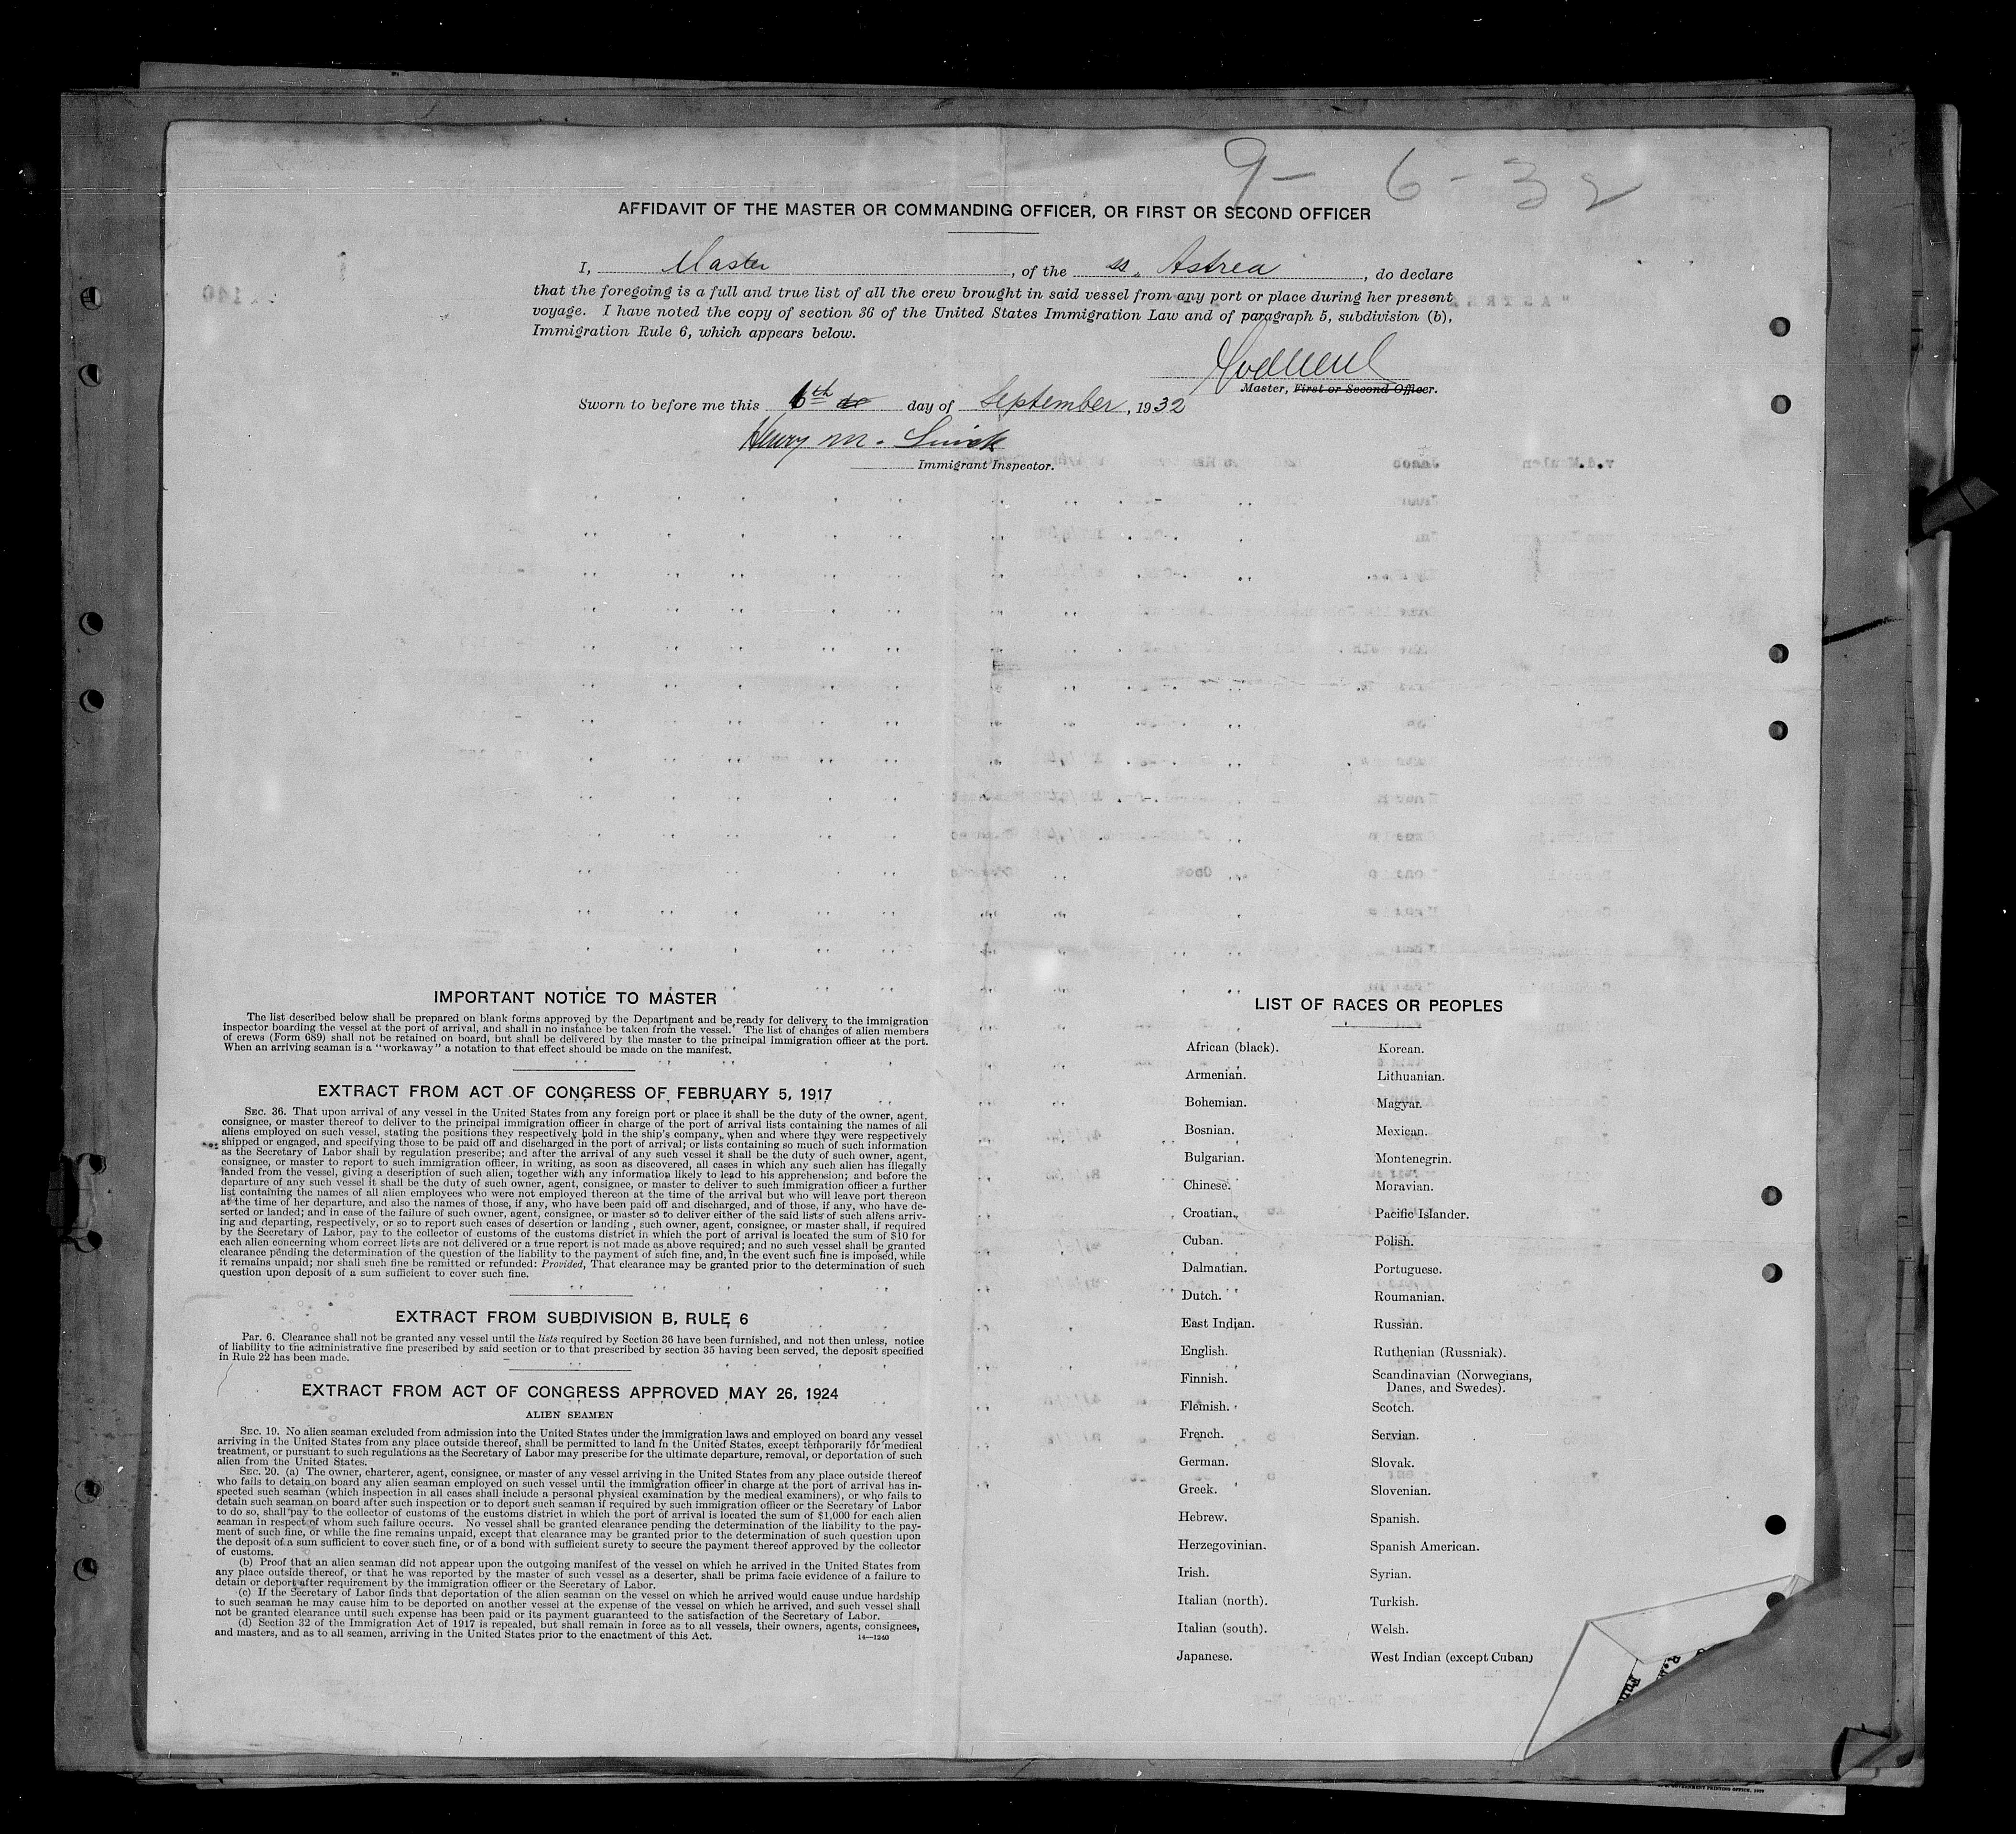 9-6-32
AFFIDAVIT OF THE MASTER OR COMMANDING OFFICER, OR FIRST OR SECOND OFFICER
I, Master, of the ss. Astrea, do declare
that the foregoing is a full and true list of all the crew brought in said vessel from any port or place during her present
voyage. I have noted the copy of section 36 of the United States Immigration Law and of paragraph 5, subdivision (b),
Immigration Rule 6, which appears below.
Master, First or Second Officer.
Sworn to before me this 6th day of September, 1932
Henry M.
Immigrant Inspector.
IMPORTANT NOTICE TO MASTER
The list described below shall be prepared on blank forms approved by the Department and be ready for delivery to the immigration
inspector boarding the vessel at the port of arrival, and shall in no instance be taken from the vessel. The list of changes of alien members
of crews (Form 689) shall not be retained on board, but shall be delivered by the master to the principal immigration officer at the port.
When an arriving seaman is a "workaway" a notation to that effect should be made on the manifest.
EXTRACT FROM ACT OF CONGRESS OF FEBRUARY 5, 1917
SEC. 36. That upon arrival of any vessel in the United States from any foreign port or place it shall be the duty of the owner, agent,
consignee, or master thereof to deliver to the principal immigration officer in charge of the port of arrival lists containing the names of all
aliens employed on such vessel, stating the positions they respectively hold in the ship's company, when and where they were respectively
shipped or engaged, and specifying those to be paid off and discharged in the port of arrival; or lists containing so much of such information
as the Secretary of Labor shall by regulation prescribe; and after the arrival of any such vessel it shall be the duty of such owner, agent,
consignee, or master to report to such immigration officer, in writing, as soon as discovered, all cases in which any such alien has illegally
landed from the vessel, giving a description of such alien, together with any information likely to lead to his apprehension; and before the
departure of any such vessel it shall be the duty of such owner, agent, consignee, or master to deliver to such immigration officer a further
list containing the names of all alien employees who were not employed thereon at the time of the arrival but who will leave port thereon
at the time of her departure, and also the names of those, if any, who have been paid off and discharged, and of those, if any, who have de-
serted or landed; and in case of the failure of such owner, agent, consignee, or master so to deliver either of the said lists of such aliens arriv-
ing and departing, respectively, or so to report such cases of desertion or landing, such owner, agent, consignee, or master shall, if required
by the Secretary of Labor, pay to the collector of customs of the customs district in which the port of arrival is located the sum of $10 for
each alien concerning whom correct lists are not delivered or a true report is not made as above required; and no such vessel shall be granted
clearance pending the determination of the question of the liability to the payment of such fine, and, in the event such fine is imposed, while
it remains unpaid; nor shall such fine be remitted or refunded: Provided, That clearance may be granted prior to the determination of such
question upon deposit of a sum sufficient to cover such fine.
EXTRACT FROM SUBDIVISION B, RULE 6
Par. 6. Clearance shall not be granted any vessel until the lists required by Section 36 have been furnished, and not then unless, notice
of liability to the administrative fine prescribed by said section or to that prescribed by section 35 having been served, the deposit specified
in Rule 22 has been made.
EXTRACT FROM ACT OF CONGRESS APPROVED MAY 26, 1924
ALIEN SEAMEN
SEC. 19. No alien seaman excluded from admission into the United States under the immigration laws and employed on board any vessel
arriving in the United States from any place outside thereof, shall be permitted to land in the United States, except temporarily for medical
treatment, or pursuant to such regulations as the Secretary of Labor may prescribe for the ultimate departure, removal, or deportation of such
alien from the United States.
SEC. 20. (a) The owner, charterer, agent, consignee, or master of any vessel arriving in the United States from any place outside thereof
who fails to detain on board any alien seaman employed on such vessel until the immigration officer in charge at the port of arrival has in-
spected such seaman (which inspection in all cases shall include a personal physical examination by the medical examiners), or who fails to
detain such seaman on board after such inspection or to deport such seaman if required by such immigration officer or the Secretary of Labor
to do so, shall pay to the collector of customs of the customs district in which the port of arrival is located the sum of $1,000 for each alien
seaman in respect of whom such failure occurs. No vessel shall be granted clearance pending the determination of the liability to the pay-
ment of such fine, or while the fine remains unpaid, except that clearance may be granted prior to the determination of such question upon
the deposit of a sum sufficient to cover such fine, or of a bond with sufficient surety to secure the payment thereof approved by the collector
of customs.
(b) Proof that an alien seaman did not appear upon the outgoing manifest of the vessel on which he arrived in the United States from
any place outside thereof, or that he was reported by the master of such vessel as a deserter, shall be prima facie evidence of a failure to
detain or deport after requirement by the immigration officer or the Secretary of Labor.
(c) If the Secretary of Labor finds that deportation of the alien seaman on the vessel on which he arrived would cause undue hardship
to such seaman he may cause him to be deported on another vessel at the expense of the vessel on which he arrived, and such vessel shall
not be granted clearance until such expense has been paid or its payment guaranteed to the satisfaction of the Secretary of Labor.
(d) Section 32 of the Immigration Act of 1917 is repealed, but shall remain in force as to all vessels, their owners, agents, consignees,
and masters, and as to all seamen, arriving in the United States prior to the enactment of this Act.
14—1240
LIST OF RACES OR PEOPLES
African (black).
Armenian.
Bohemian.
Bosnian.
Bulgarian.
Chinese.
Croatian.
Cuban.
Dalmatian.
Dutch.
East Indian.
English.
Finnish.
Flemish.
French.
German.
Greek.
Hebrew.
Herzegovinian.
Irish.
Italian (north).
Italian (south).
Japanese.
Korean.
Lithuanian.
Magyar.
Mexican.
Montenegrin.
Moravian.
Pacific Islander.
Polish.
Portuguese.
Roumanian.
Russian.
Ruthenian (Russniak).
Scandinavian (Norwegians,
Danes, and Swedes).
Scotch.
Servian.
Slovak.
Slovenian.
Spanish.
Spanish American.
Syrian.
Turkish.
Welsh.
West Indian (except Cuban)